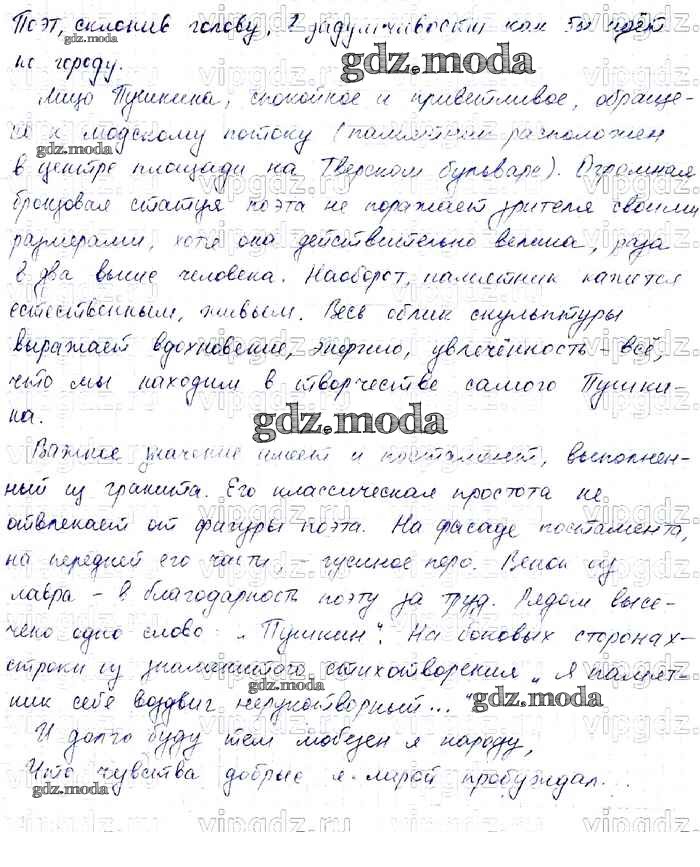 Поэт, склонив голову, в задумчивости как бы идёт
по городу.
gdz.moda
Лицо Пушкина, спокойное и приветливое, обраще-
но к людскому потоку (памятник расположен
gdz.moda
в центре площади на Тверском бульваре). Огромная
бронзовая статуя поэта не поражает зрителя своими
размерами, хотя она действительно велика, раза
в два выше человека. Наоборот, памятник кажется
естественным, живым. Весь облик скульптуры
выражает вдохновение, энергию, увлечённость – всё,
что мы находим в творчестве самого Пушки-
на.
gdz.moda
Важное значение имеет и постамент, выполнен-
ный из гранита. Его классическая простота не
отвлекает от фигуры поэта. На фасаде постамента,
на передней его части, – гусиное перо. Венок из
лавра – в благодарность поэту за труд. Рядом высе-
чено одно слово: „Пушкин". На боковых сторонах-
строки из знаменитого стихотворения „Я памят-
ник себе воздвиг нерукотворный..."
gdz.moda
gdz.moda
И долго буду тем любезен я народу,
Что чувства добрые я лирой пробуждал...
gdz.moda
gdz.moda
vipgdz.ru